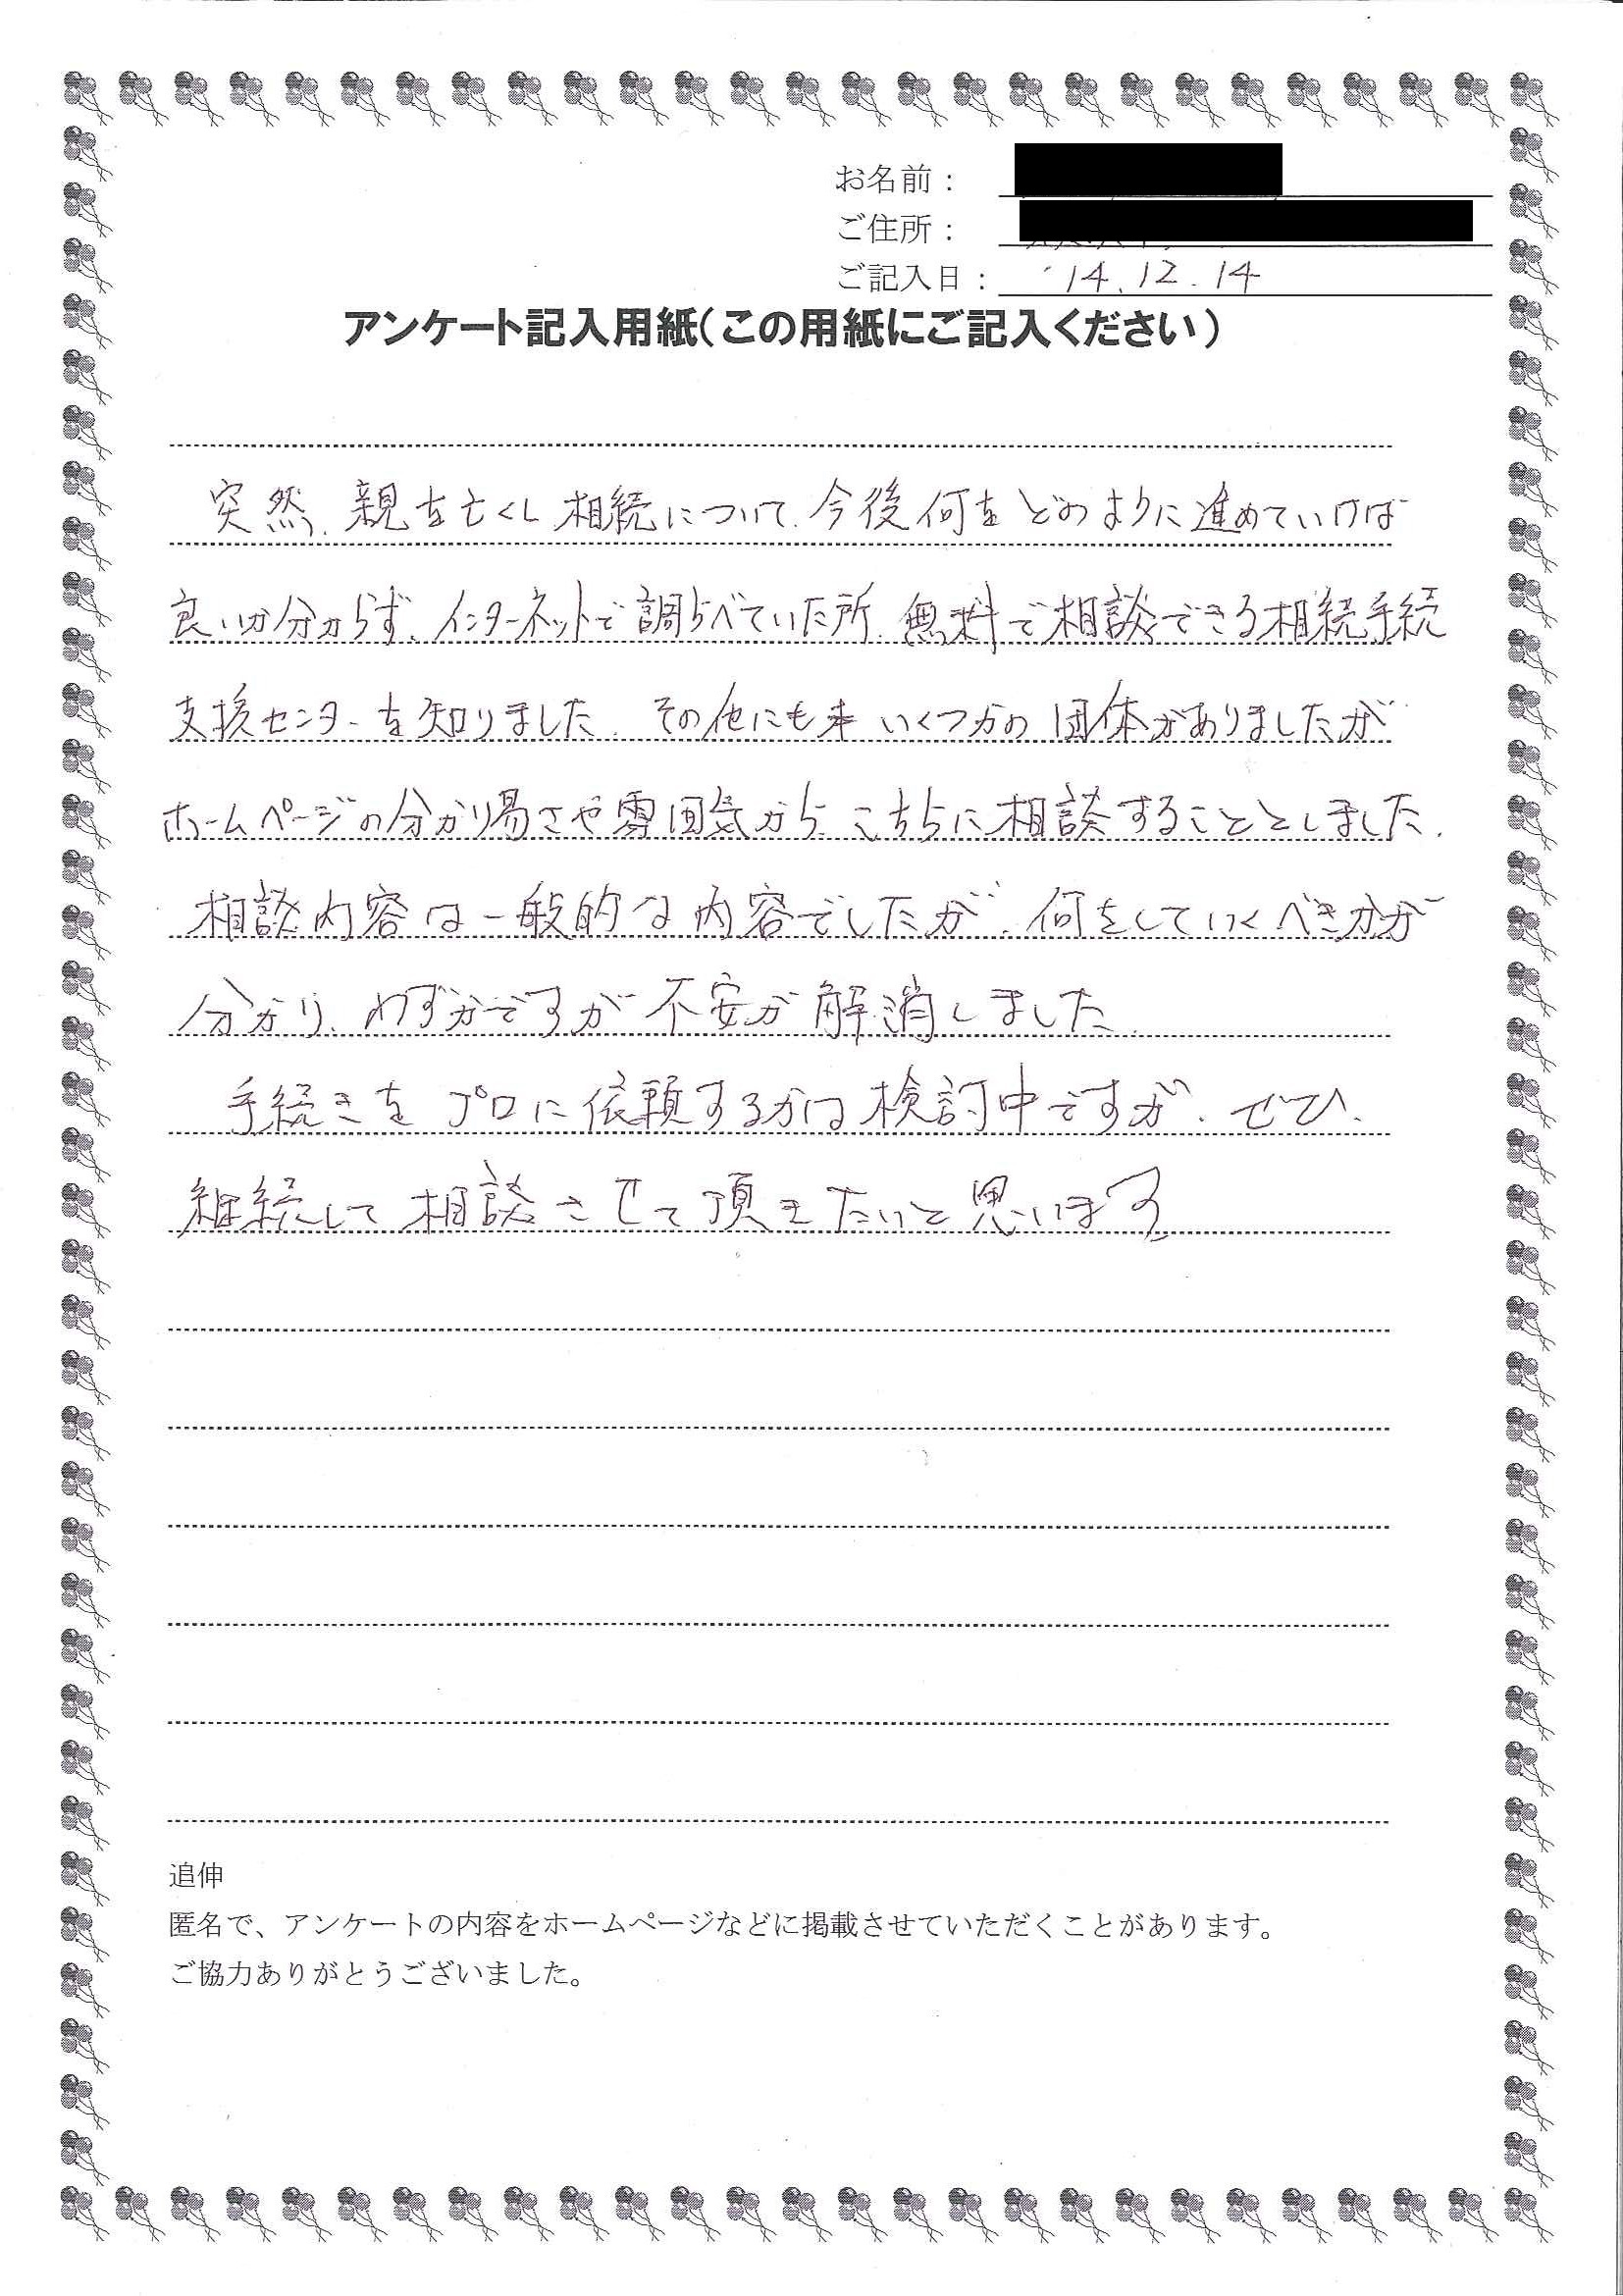 お名前：
ご住所：
ご記入日： '14.12.14
アンケート記入用紙（この用紙にご記入ください）
突然、親を亡くし相続について、今後何をどのように進めていけば
良いか分からず、インターネットで調らべていた所、無料で相談できる相続手続
支援センターを知りました。その他にも いくつかの団体がありましたが
ホームページの分かり易さや雰囲気から、こちらに相談することとしました。
相談内容は一般的な内容でしたが、何をしていくべきかが
分かり、わずかですが不安が解消しました。
手続きをプロに依頼するかは検討中ですが、ぜひ、
継続して相談させて頂きたいと思います
追伸
匿名で、アンケートの内容をホームページなどに掲載させていただくことがあります。
ご協力ありがとうございました。